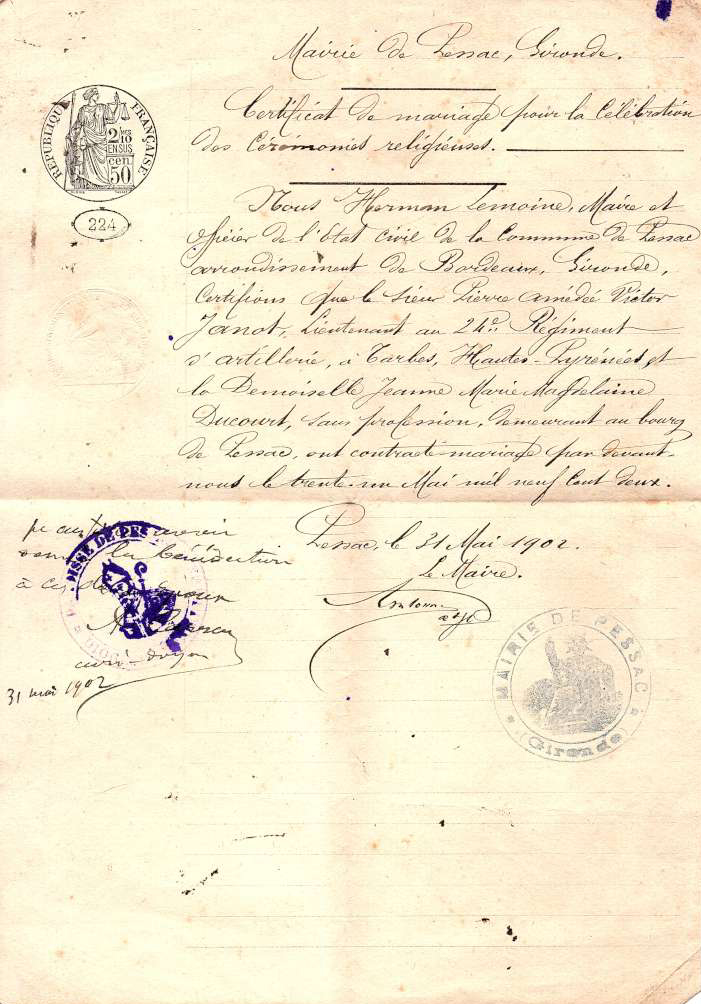 Mairie de Pessac, Gironde.
RÉPUBLIQUE FRANÇAISE
2/10 EN SUS
50 cen
224
Certificat de mariage pour la Célébration
des Cérémonies religieuses.
Nous Herman Lemoine, Maire et
officier de l'Etat civil de la Commune de Pessac
arrondissement de Bordeaux, Gironde,
Certifions que le sieur Pierre amédée Victor
Janot, Lieutenant au 24e Régiment
d'artillerie, à Tarbes, Hautes-Pyrénées et
la Demoiselle Jeanne Marie Magdelaine
Ducourt, sans profession, demeurant au bourg
de Pessac, ont contracté mariage par devant
nous le trente-un Mai mil neuf Cent deux.
Pessac, le 31 Mai 1902.
Le Maire.
MAIRIE DE PESSAC
(Gironde)
je certifie avoir
donné la bénédiction
à ces époux
curé-doyen
31 mai 1902